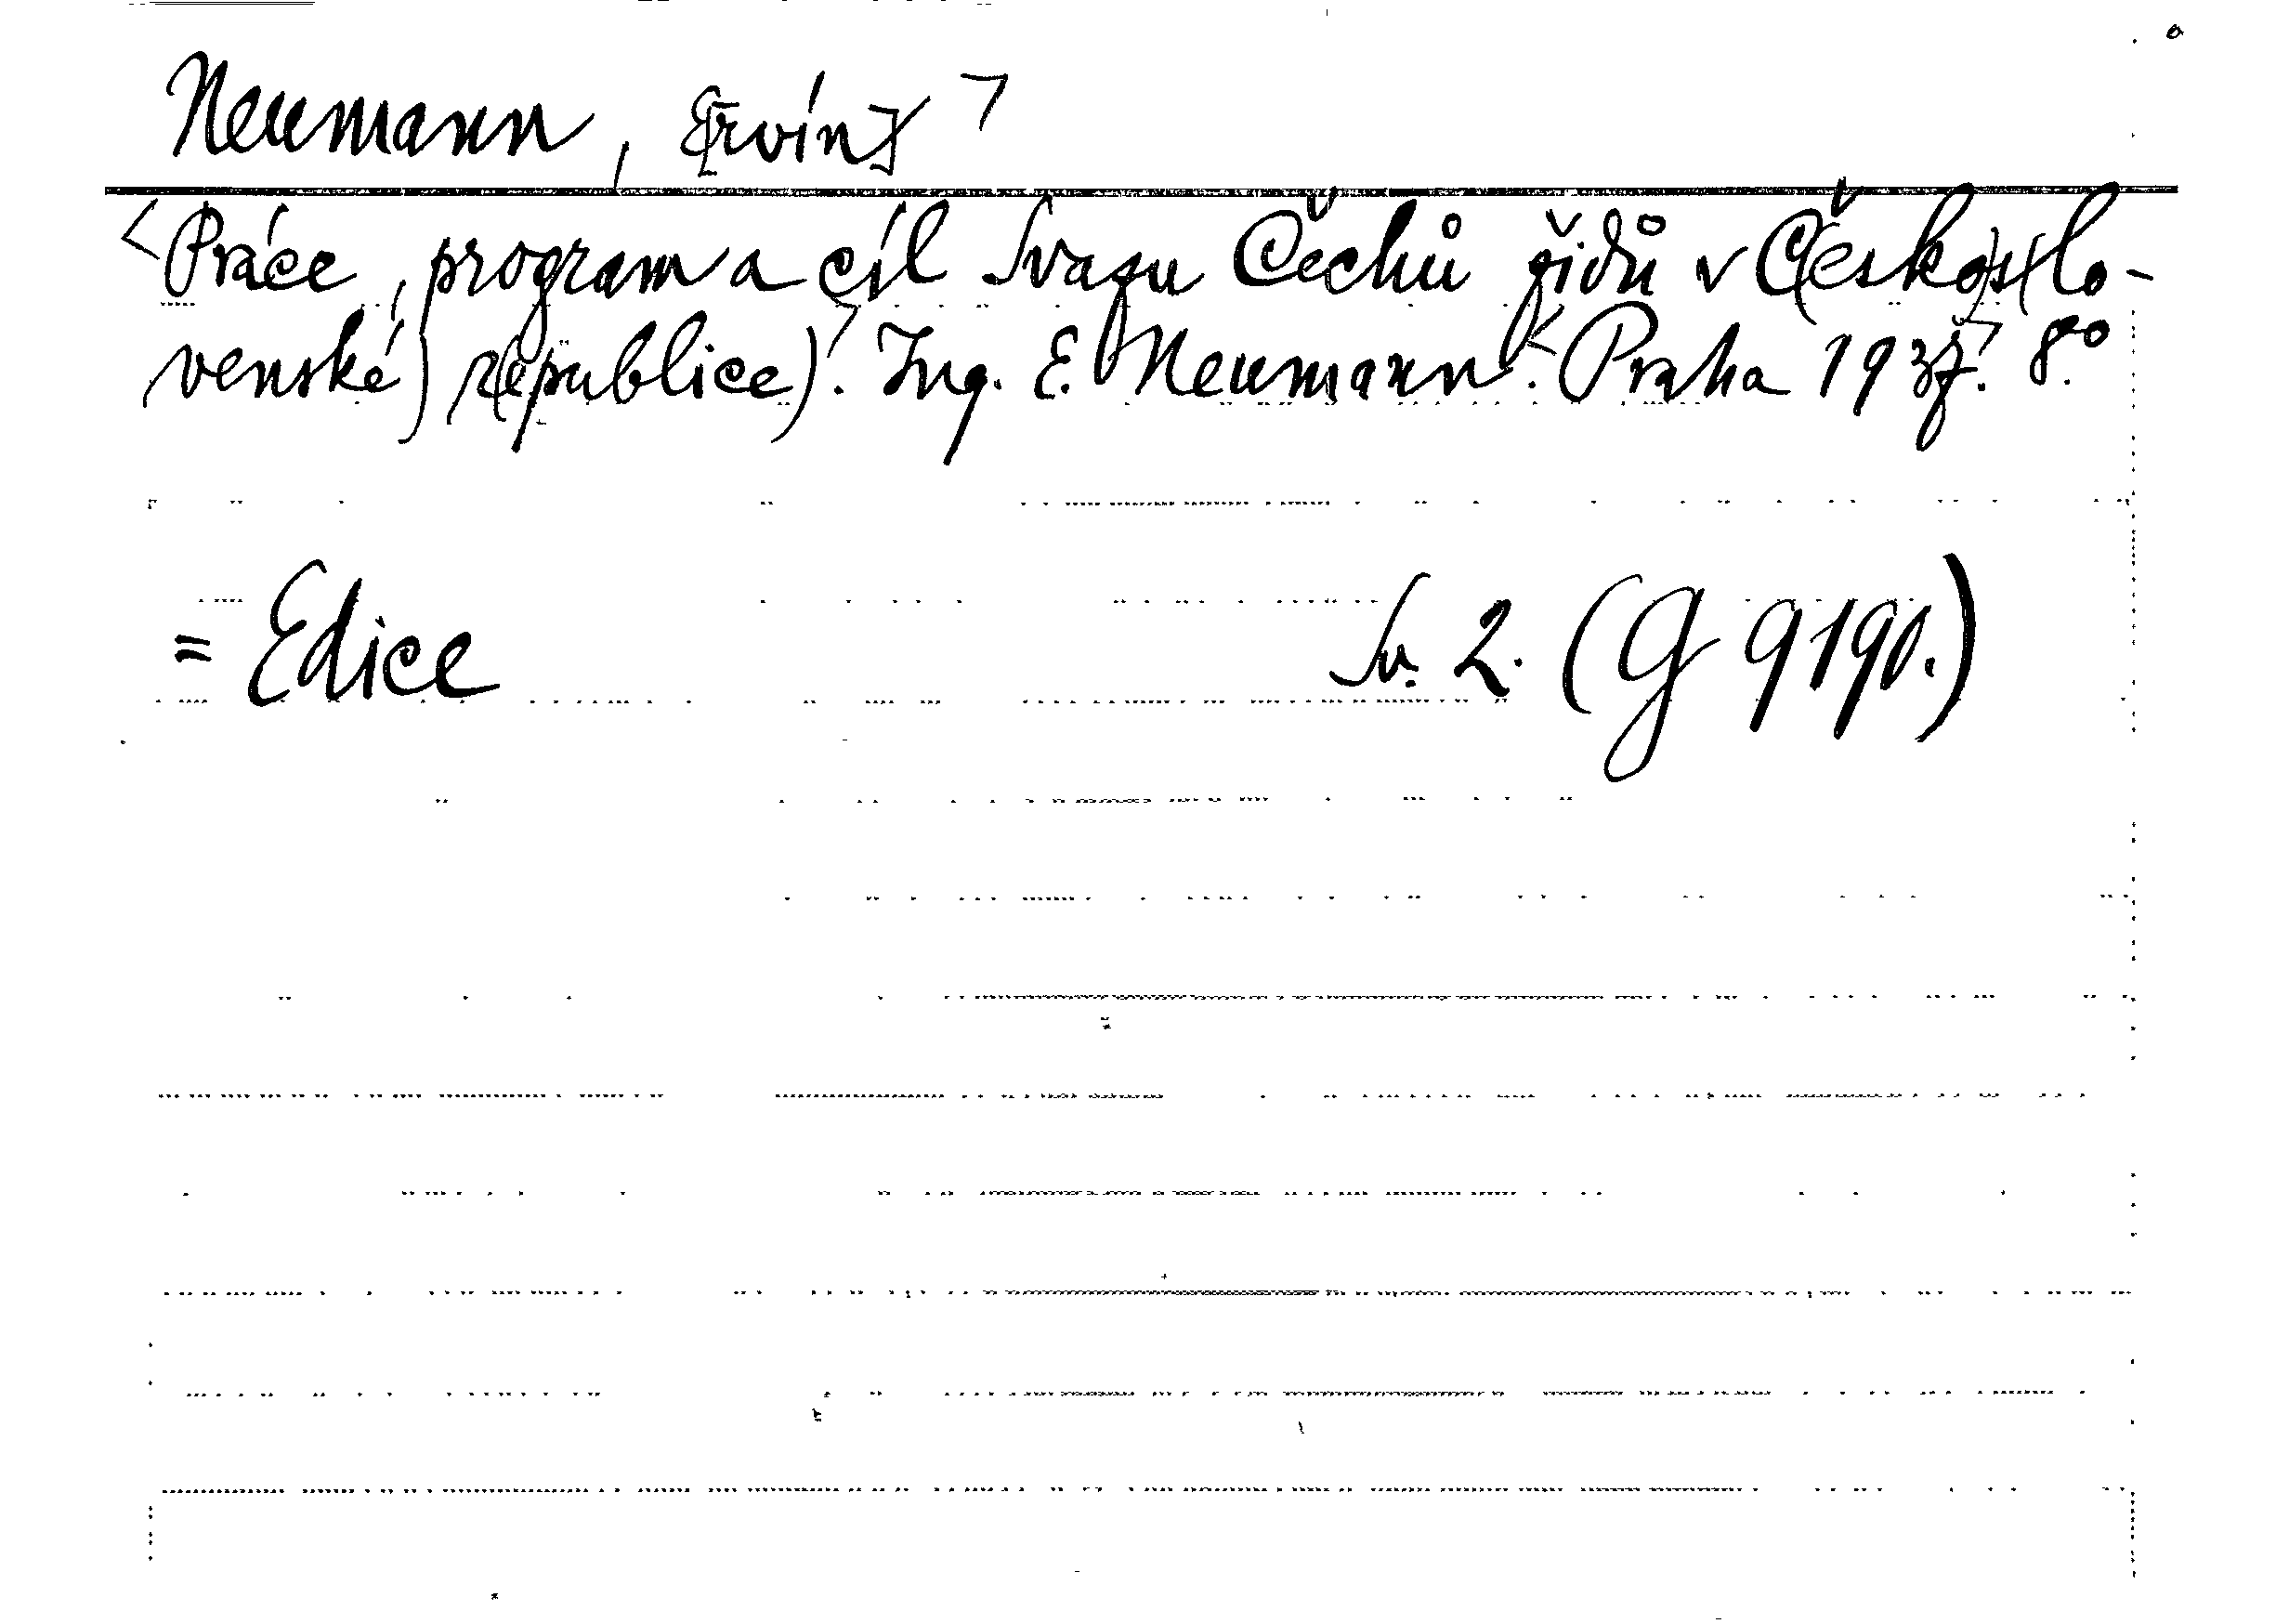 Neumann, E[rvín]
Práce, program a cíl Svazu Čechů židů v Č(esko)s(lo-
venské) r(epublice). Ing. E. Neumann. Praha 1937. 8°.
= Edice Sv. 2. (G 9190.)